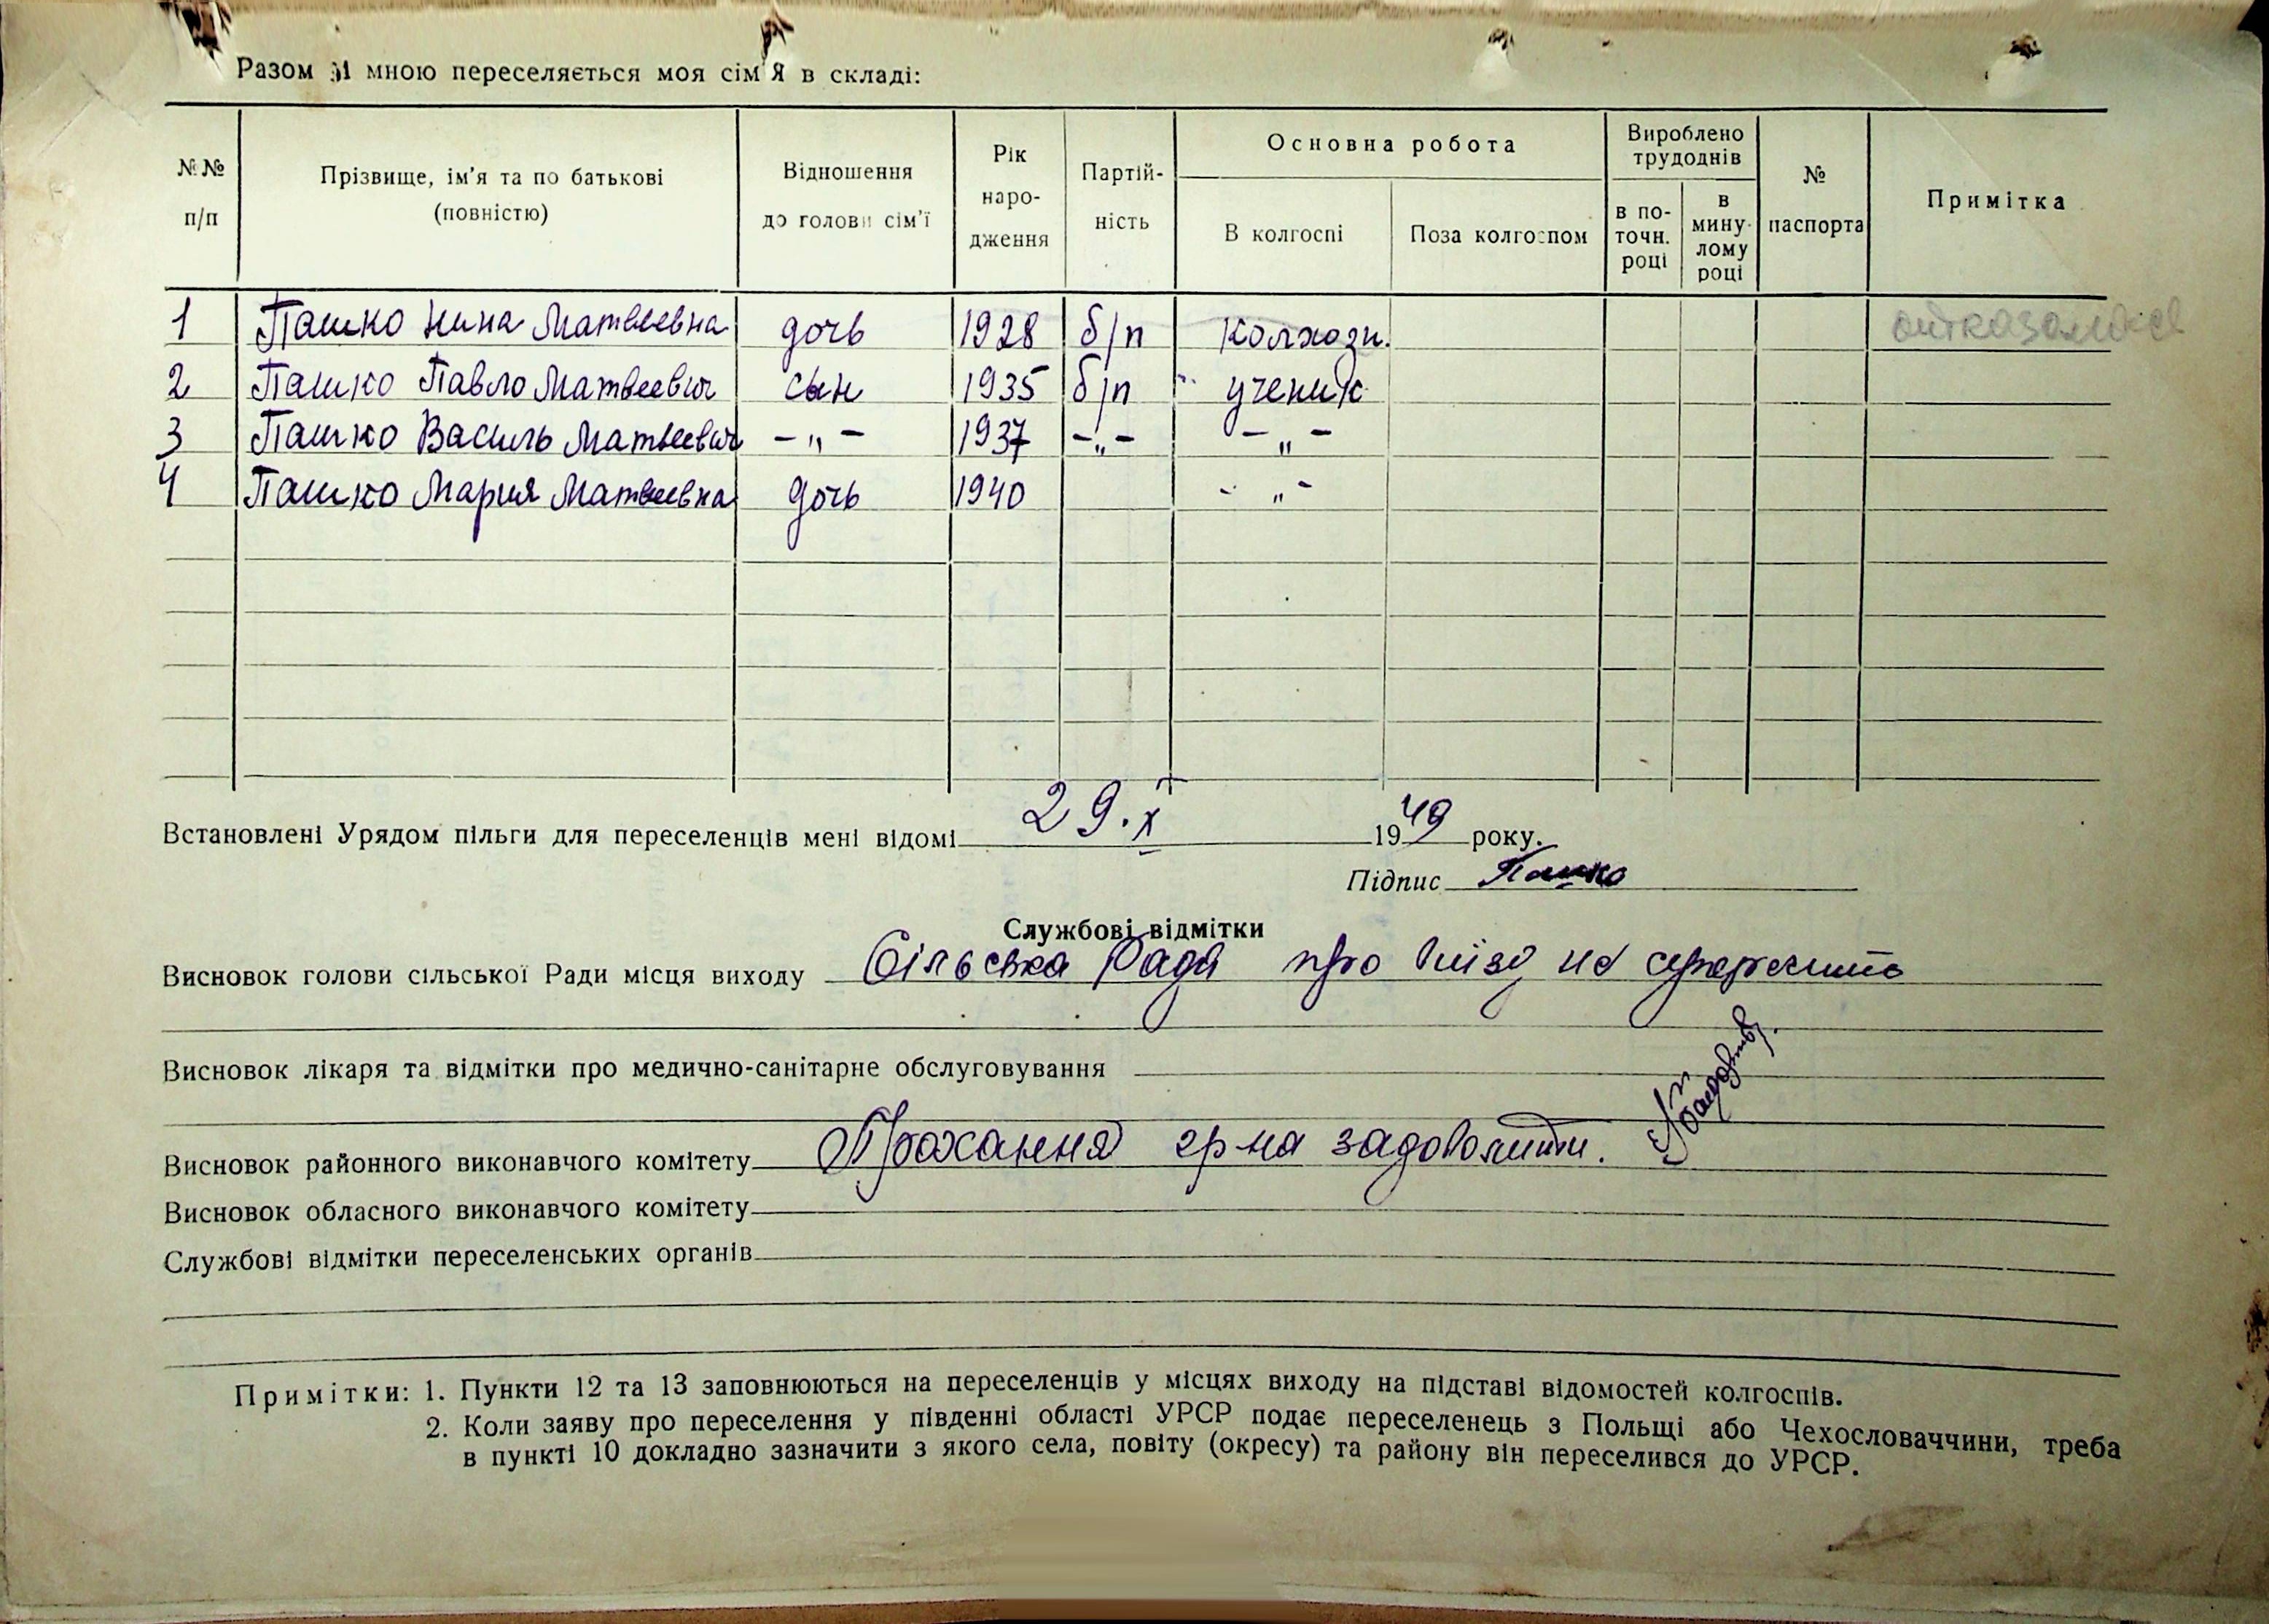 Разом зі мною переселяється моя сім'я в складі:
№№ п/п
Прізвище, ім'я та по батькові (повністю)
Відношення до голови сім'ї
Рік народження
Партійність
Основна робота
В колгоспі
Поза колгоспом
Вироблено трудоднів
в поточн. році
в минулому році
№ паспорта
Примітка
1 Пашко Нина Матвеевна дочь 1928 б/п колхозн. отказалися
2 Пашко Павло Матвеевич сын 1935 б/п ученик
3 Пашко Василь Матвеевич -„- 1937 -„- -„-
4 Пашко Мария Матвеевна дочь 1940 -„-
Встановлені Урядом пільги для переселенців мені відомі 29.X 1949 року.
Підпис Пашко
Службові відмітки
Висновок голови сільської Ради місця виходу Сільська Рада про виїзд не
Висновок лікаря та відмітки про медично-санітарне обслуговування
Висновок районного виконавчого комітету Прохання гр-на задовольнити.
Висновок обласного виконавчого комітету
Службові відмітки переселенських органів
Примітки: 1. Пункти 12 та 13 заповнюються на переселенців у місцях виходу на підставі відомостей колгоспів.
2. Коли заяву про переселення у південні області УРСР подає переселенець з Польщі або Чехословаччини, треба
в пункті 10 докладно зазначити з якого села, повіту (окресу) та району він переселився до УРСР.